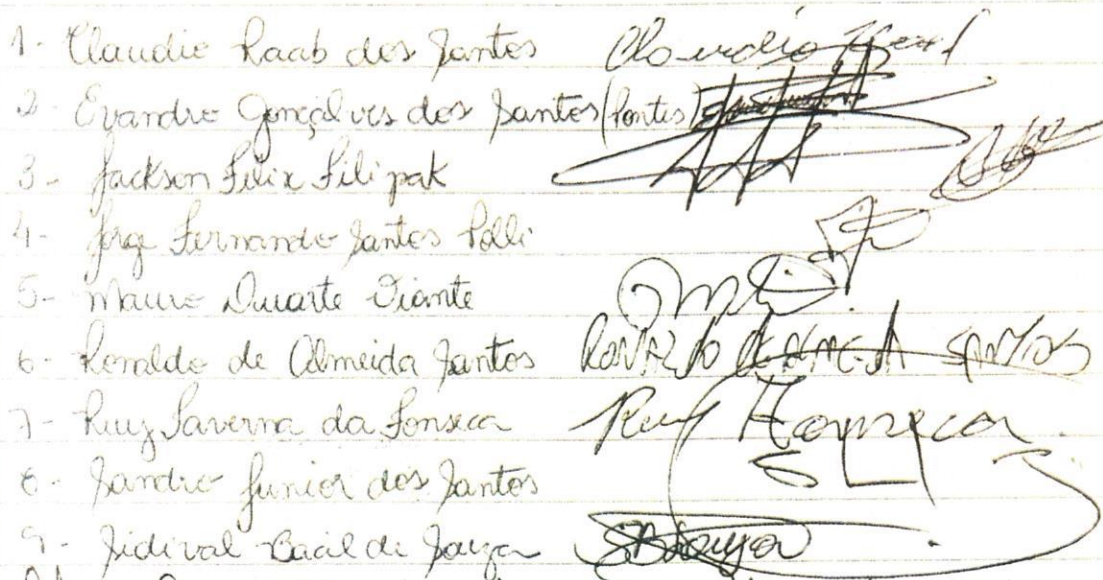 1- Claudio Raab dos Santos Claudio
2- Evandro Gonçalves dos Santos (Pontes)
3- Jackson Felix Filipak
4- Jorge Fernando Santos Polli
5- Mauro Duarte Viante
6- Ronaldo de Almeida Santos RONALDO DE ALMEIDA SANTOS
7- Ruy Taverna da Fonseca Ruy Fonseca
8- Sandro Junior dos Santos
9- Sidival Bacil de Souza SBSouza